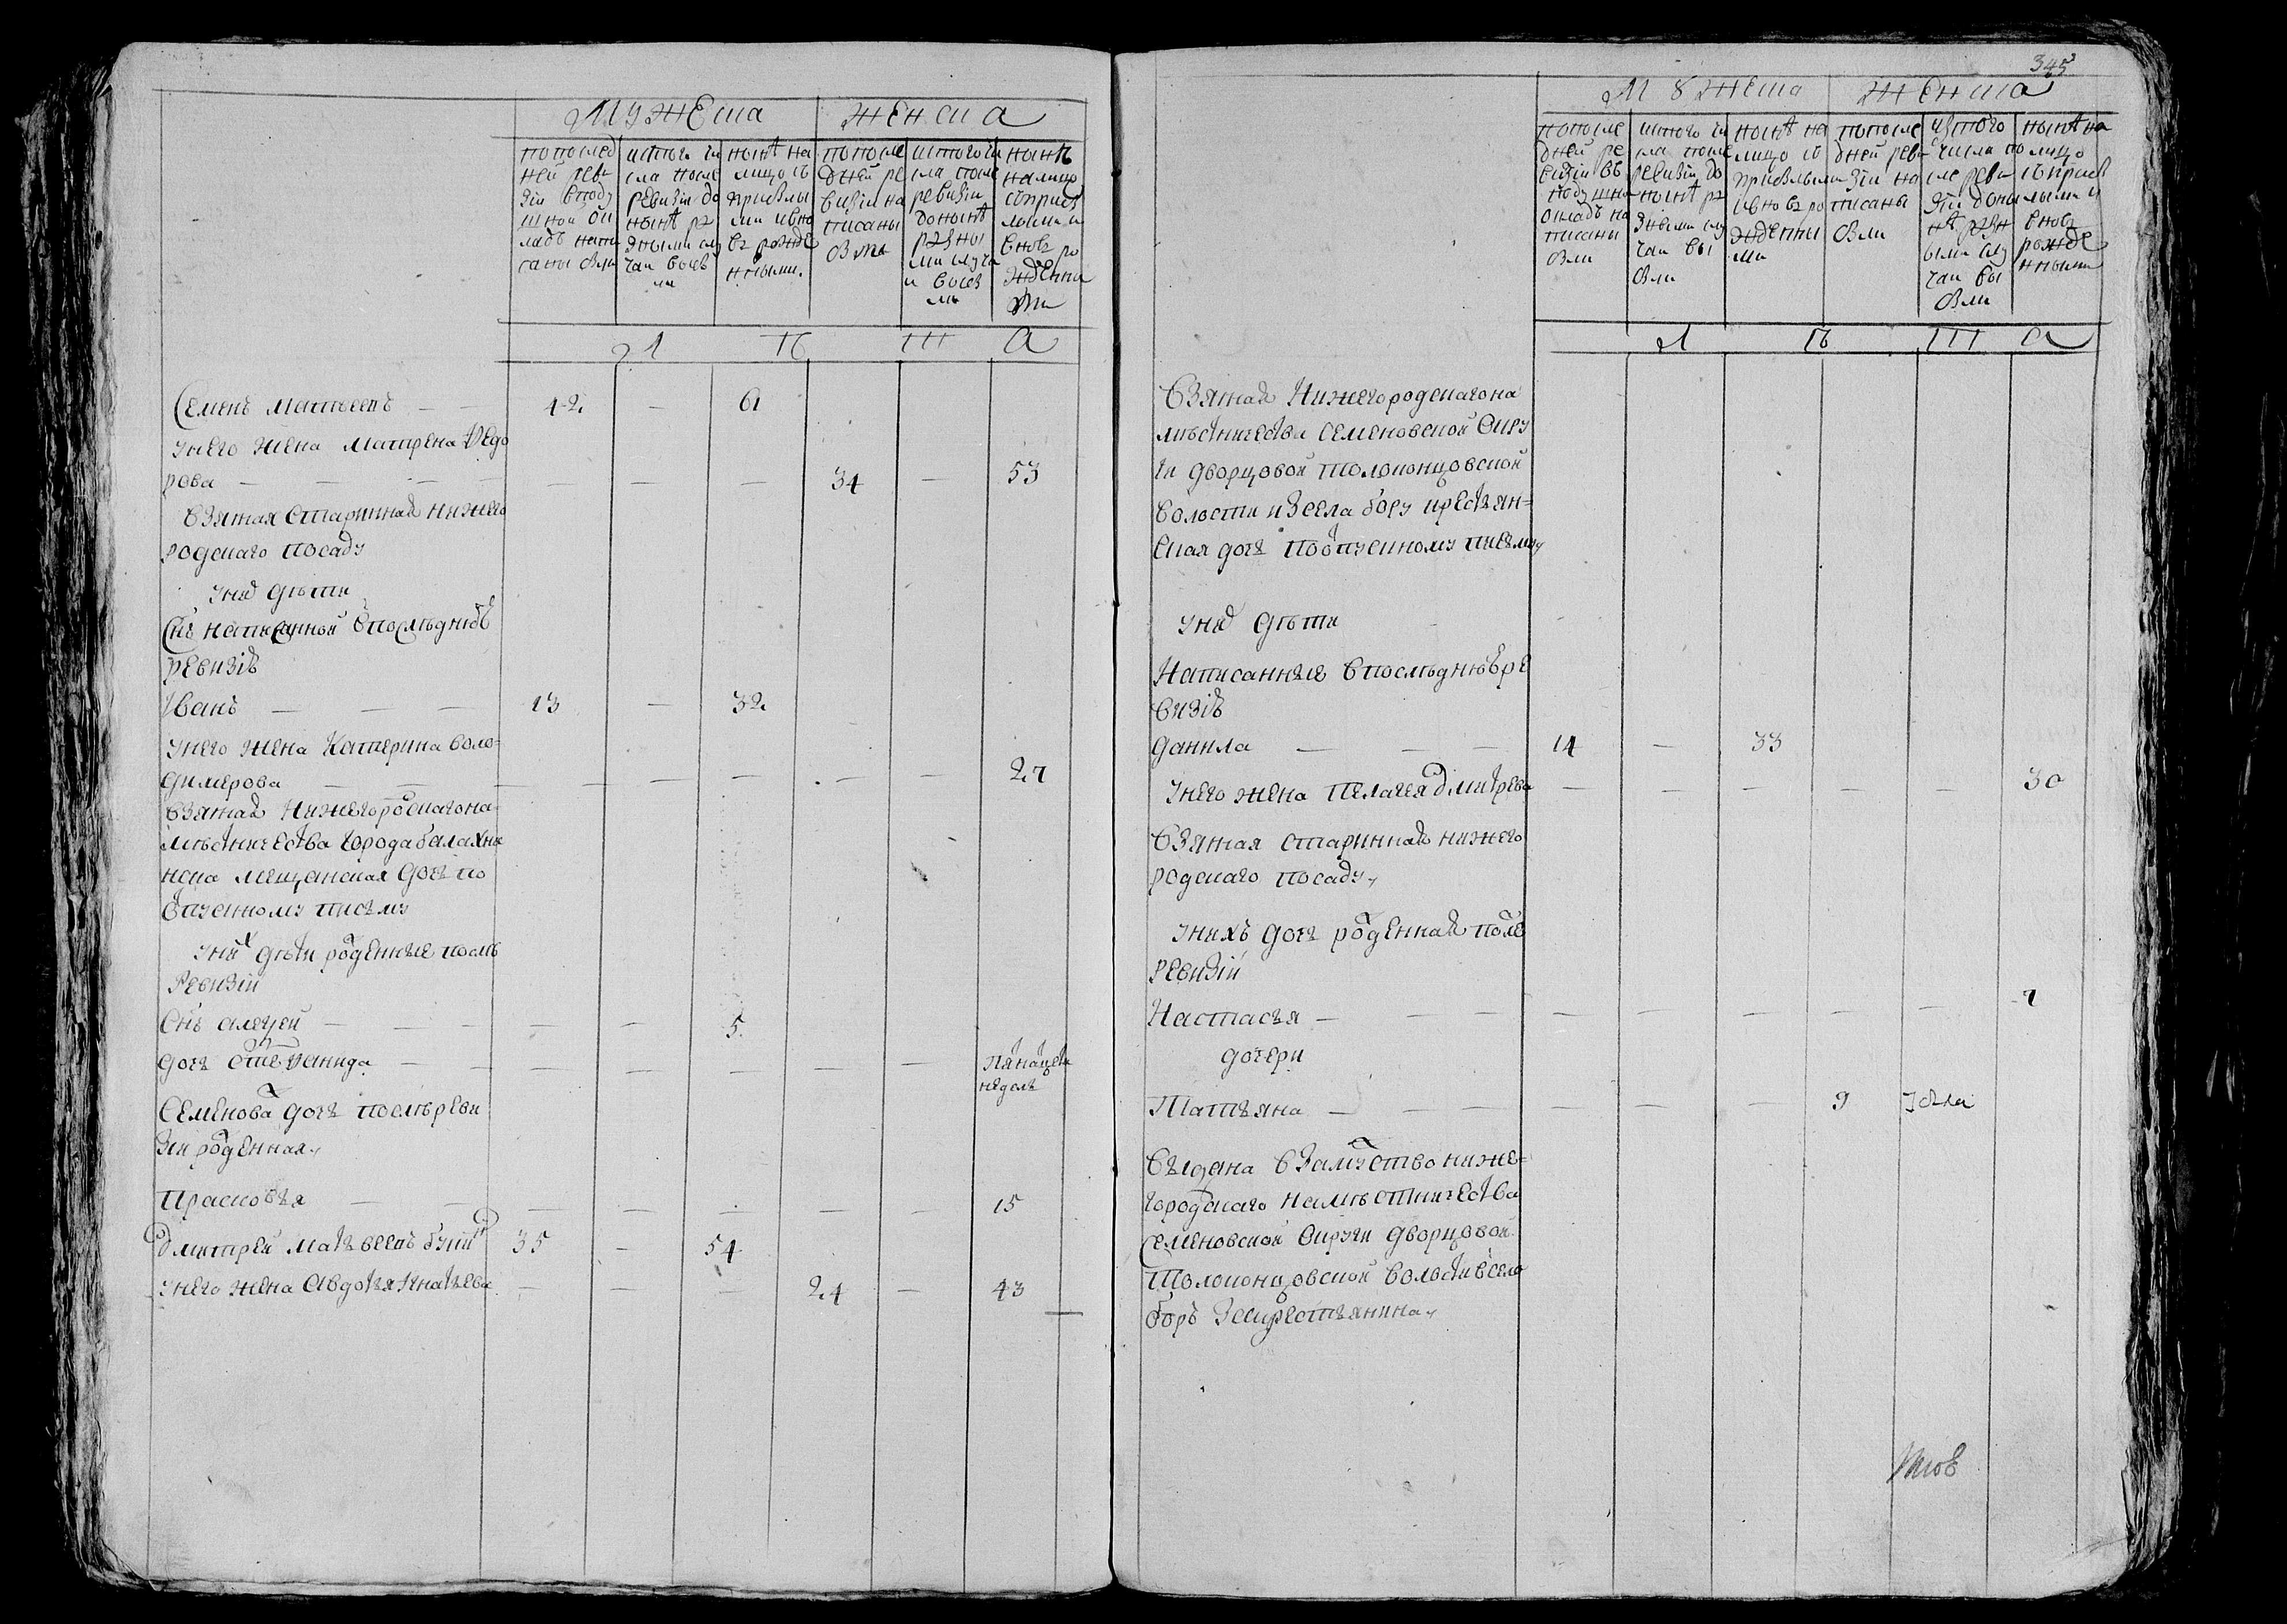 Мужеска
женска
попослед
ней реви
зiи вподу
шной ок
ладъ напи
саны были
истого чи
сла после
ревизiи до
нынѣ ра
зными слу
чаи выбы
ли
нынѣ на
лицо съ
прибылы
ми ивно
въ рожде
нными.
попосле
дней ре
визiи на
писаны
были
истогочи
сла после
ревизiи
донынѣ
разны
ми случа
и выбы
ли
нынѣ
налицо
сприбы
лыми и
вновь ро
жденны
ми
Л
Ѣ
Т
А
Семенъ Матвеевъ — — 42 — 61
унего жена Матрена Федо
рова — — — — — — — 34 — 53
Взятая старинная нижего
родскаго посаду
уних дѣти
Снъ написанной впослѣднюю
ревизiю
Иванъ — — — 13 — 32
унего жена Катерина Воло=
димерова — — — — — — — 27
взятая Нижегородскагона
мѣстничества города балахны
мещанская дочь по
отпускному писму
уних дѣти рожденные послѣ
Ревизiи
Снъ алексей — — — — — 5
дочь степанида — — — — — — — — пятнатцети
недель
Семенова дочь послѣреви
зiи рожденная
Прасковья — — — — — — — 15
дмитрей Матвеевъ 35 — 54
унего жена Авдотья Игнатьева — — — 24 — 43
345
Мужеска
женска
попосле
дней ре
визiи въ
подушно
окладъ на
писаны
были
истого чи
сла после
ревизiи до
нынѣ ра
зными слу
чаи вы
были
нынѣ на
лицо съ
прибылыми
ивновь ро
жденны
ми
попосле
дней реви
зiи на
писаны
были
изтого
числа по
сле реви
зiи доны
нѣ разн
ыми слу
чаи вы
были
нынѣ на
лицо
сприбы
лыми и
вновь
рожде
нными
Л
Ѣ
Т
А
Взятая Нижегородскагона
мѣстничества семеновской окру
ги дворцовой толоконцовской
волости изсела бору крестьян=
ская дочь поотпускному писму
уних дѣти
Написанные впослѣднююре
визiю
данила — — — 14 — 33
унего жена Пелагея дмитрева — — — — — 30
Взятая старинная нижего
родскаго посаду
унихъ дочь рожденная после
ревизiи
Настасья — — — — — — — — 7
дочери
Татьяна — — — — — — 9
выдана взамужство ниже=
городскаго намѣстничества
семеновской округи дворцовой
Толоконцовской волости всело
боръ закрестьянина